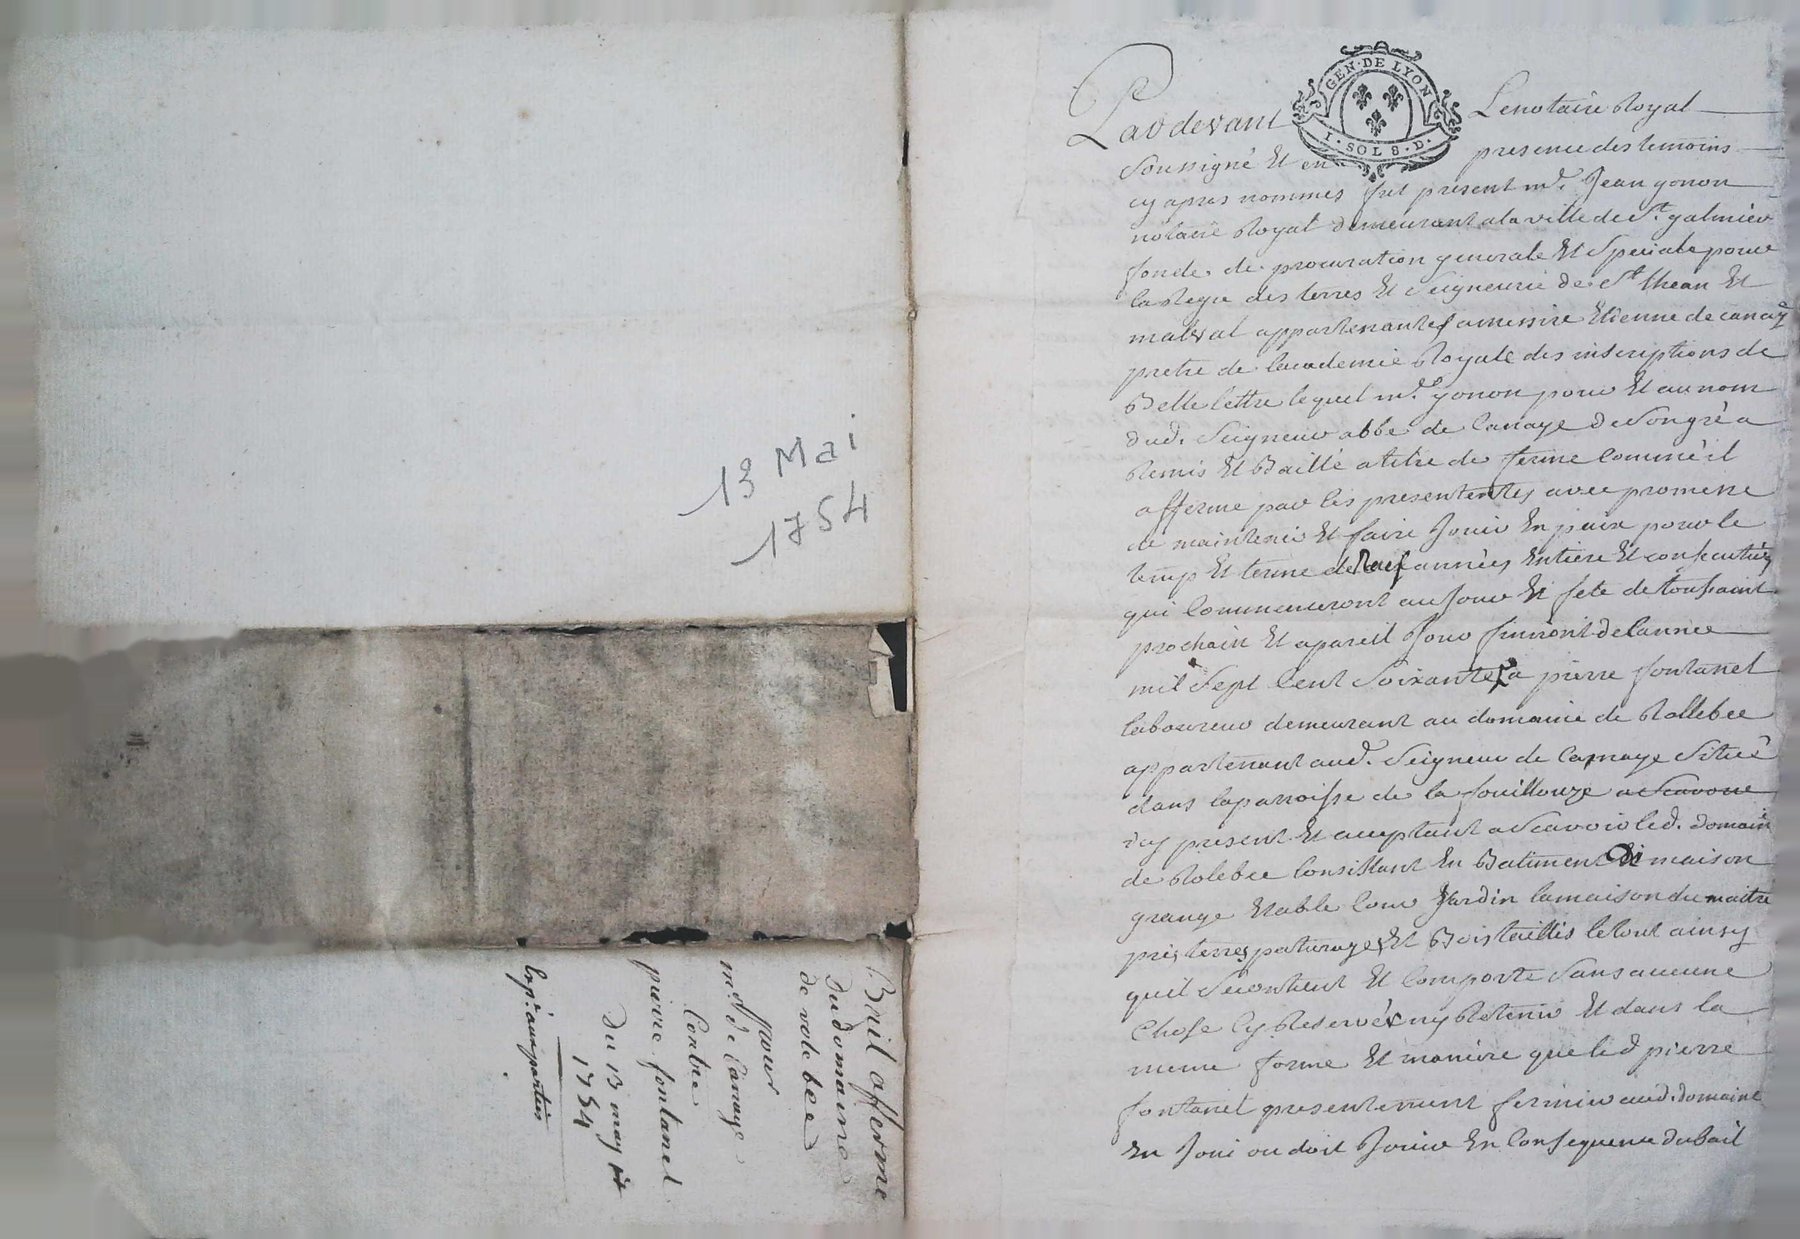 13 Mai
1754
Bail afferme
du domaine
de role bee
pour
mr. de Canaye
Contre
pierre fontanel
Du 13 may
1754
Exp. aux parties
GEN. DE LYON
I. SOL 8. D.
Pardevant Lenotaire Royal
Soussigné Et en presence des temoins
cy apres nommés fut present me. Jean gonon
notaire Royal demeurant ala ville de St. galmier
fondé de procuration generale Et Speciale pour
la Regie des terres Et Seigneurie de St. thean Et
malval appartenantes amessire Etienne de canaye
pretre de lacademie Royale des inscriptions de
Belle lettre lequel me. gonon pour Et aunom
dud. Seigneur abbé de Canaye de Songré a
Remis Et Baillé atitre de ferme Comme il
afferme par les presentes avec promesse
de maintenir Et faire Jouir En paix pour le
temp Et terme de années Entiere Et consecutives
qui Commenceront au Jour Et fete de toussaint
prochain Et apareil Jour finiront de lannée
mil Sept Cent Soixante a pierre fontanel
laboureur demeurant au domaine de Rollebee
appartenant aud. Seigneur de Canaye Situé
dans laparroisse de la fouillouze a Scavoir
icy present Et acceptant a Scavoir led. domaine
de Rolebee Consistant En Batiment de maison
grange Etable Cour Jardin lamaison du maitre
pres terres paturages Et Bois taillis letout ainsy
quil Secontient Et Comporte Sans aucune
Chose Cy Reservé ny Retenir Et dans la
meme forme Et maniere que led pierre
fontanel presentement fermier aud. domaine
En Joui ou doit Jouir En Consequence du bail